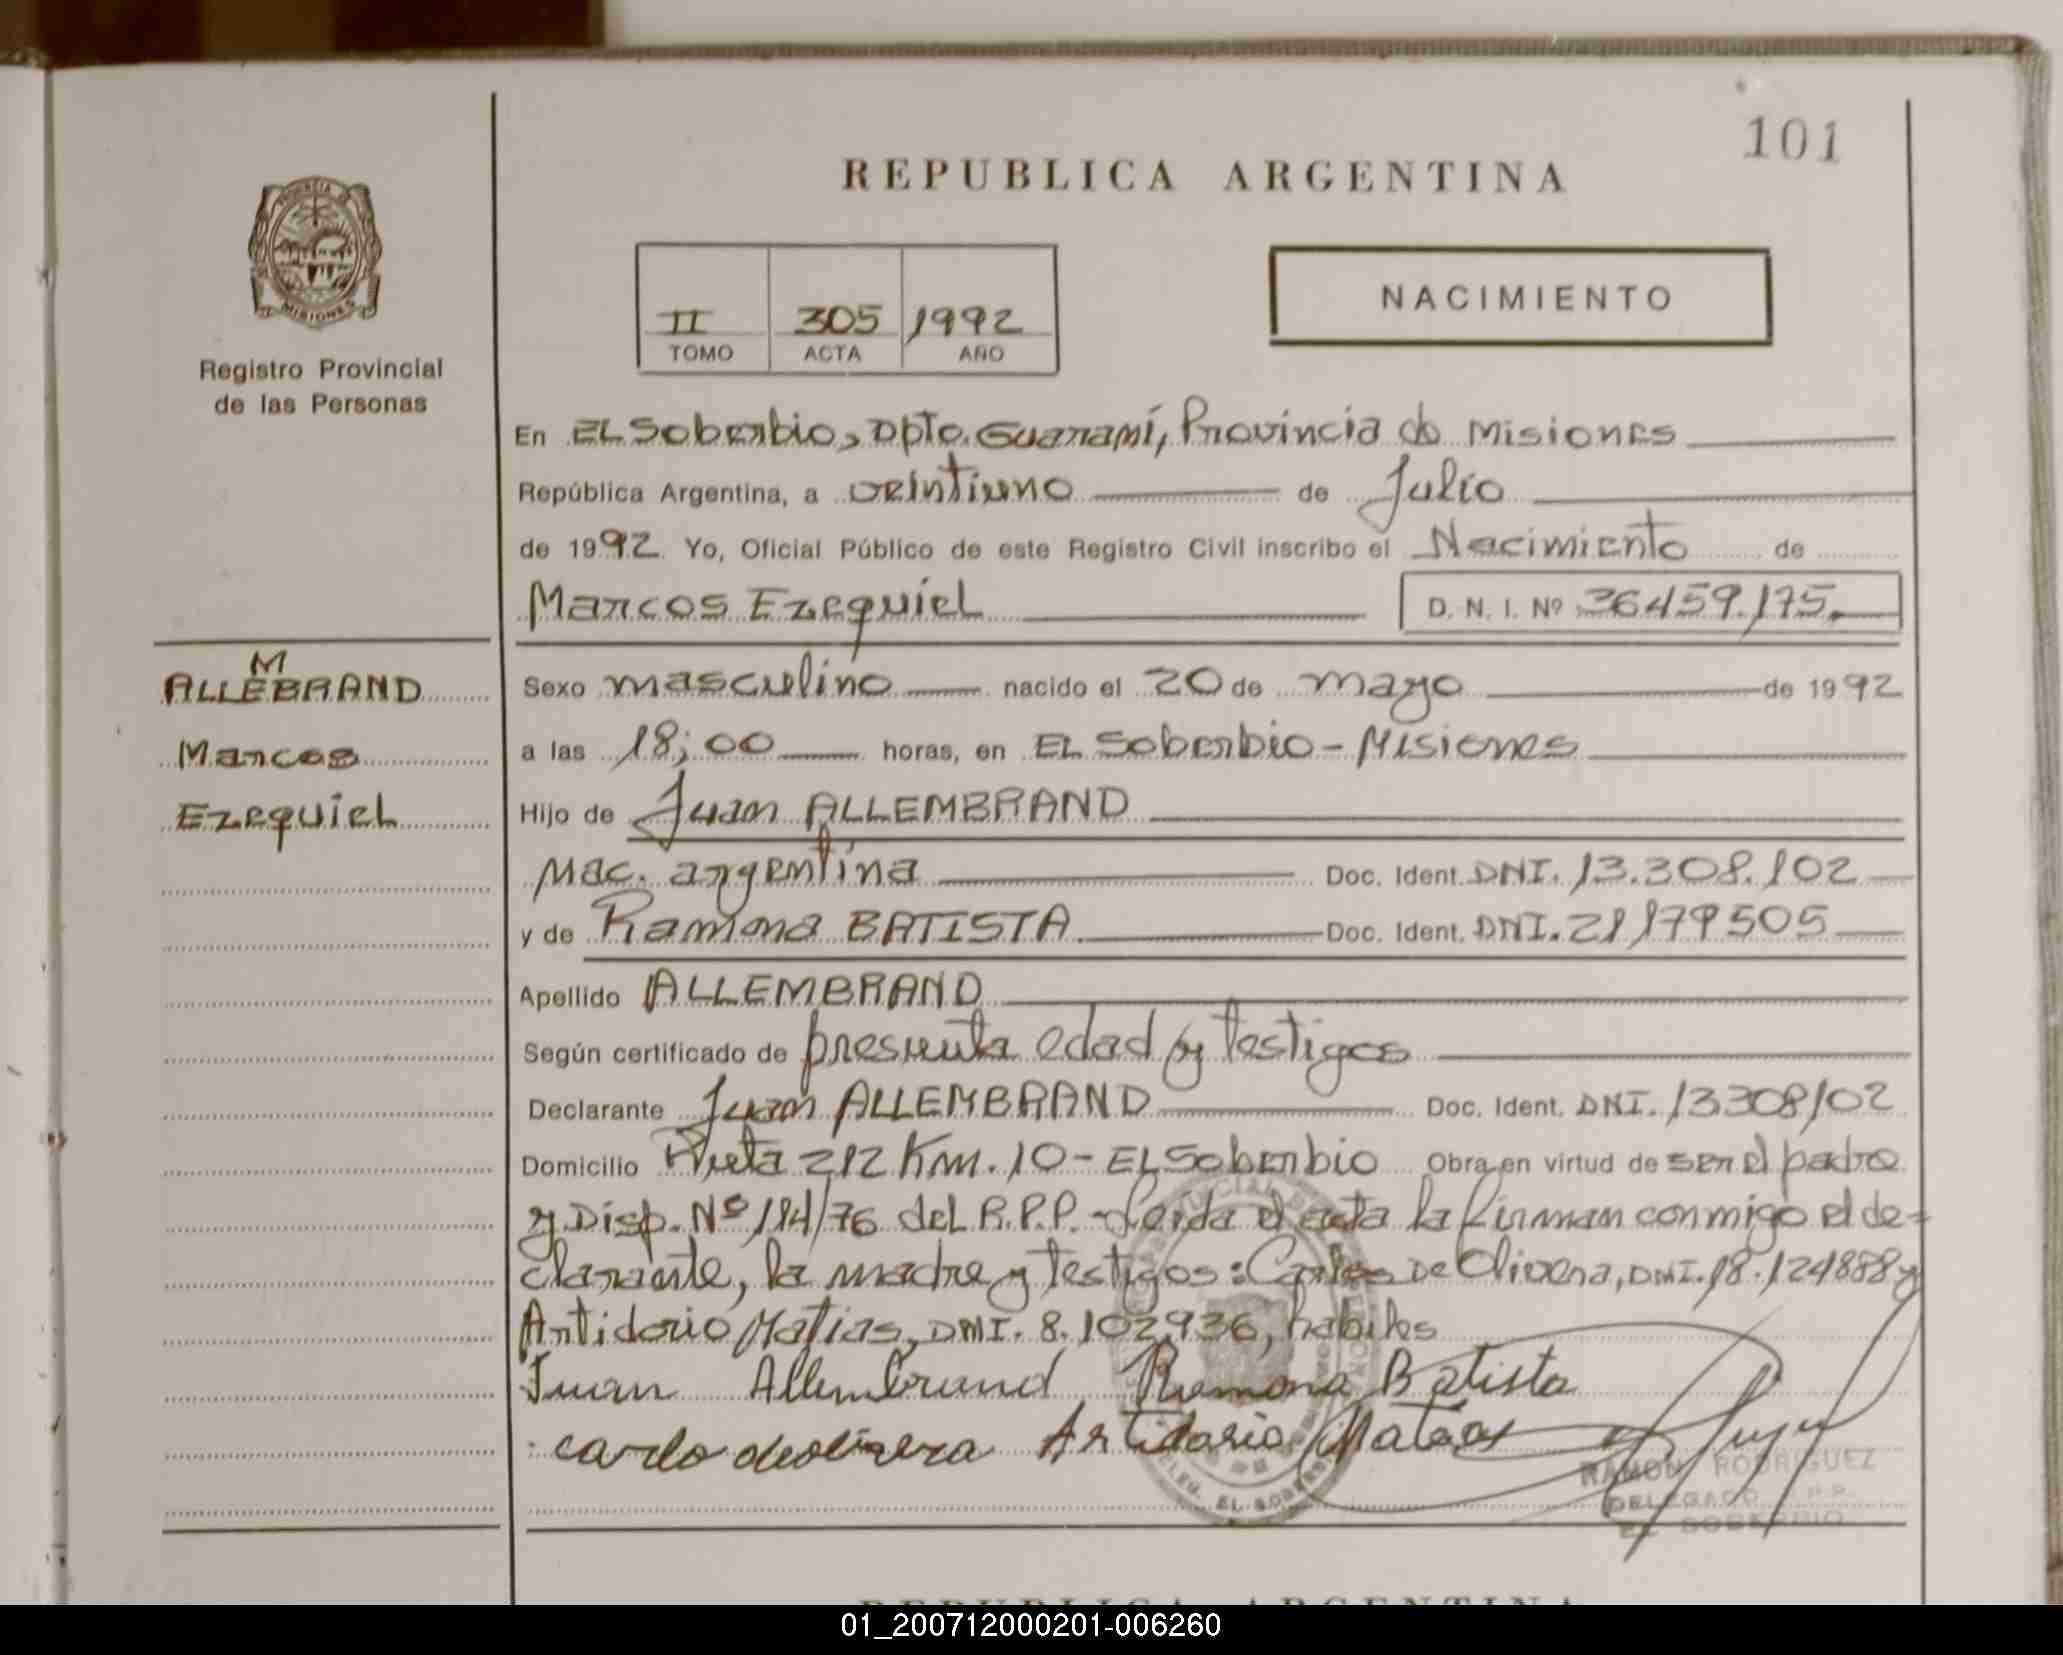 101
REPUBLICA ARGENTINA
PROVINCIA DE
MISIONES
Registro Provincial
de las Personas
II 305 1992
TOMO ACTA AÑO
NACIMIENTO
En EL Soberbio, Dpto. Guaraní, Provincia de Misiones
República Argentina, a veintiuno de Julio
de 1992. Yo, Oficial Público de este Registro Civil inscribo el Nacimiento de
Marcos Ezequiel D. N. I. Nº 36459.175.
M
ALLEBRAND
Marcos
Ezequiel
Sexo masculino nacido el 20 de mayo de 1992
a las 18;00 horas, en EL Soberbio - Misiones
Hijo de Juan ALLEMBRAND
Nac. argentina Doc. Ident. DNI. 13.308.102
y de Ramona BATISTA Doc. Ident. DNI. 21179505
Apellido ALLEMBRAND
Según certificado de presunta edad y testigos
Declarante Juan ALLEMBRAND Doc. Ident. DNI. 13308102
Domicilio Ruta 212 Km. 10 - EL Soberbio Obra en virtud de ser el padre
y Disp. Nº 184/76 del R.P.P. - Leida el acta la firman conmigo el de-
clarante, la madre y testigos: Carlos De Olivera, DNI. 18.124888 y
Antidorio Matias, DNI. 8.102.936, habiles
Juan Allembrand Ramona Batista
carlo deolivera Antidorio Matias
RAMON RODRIGUEZ
DELEGADO R.P.P.
EL SOBERBIO
DELEG. EL SOBERBIO
REPUBLICA ARGENTINA
01_200712000201-006260